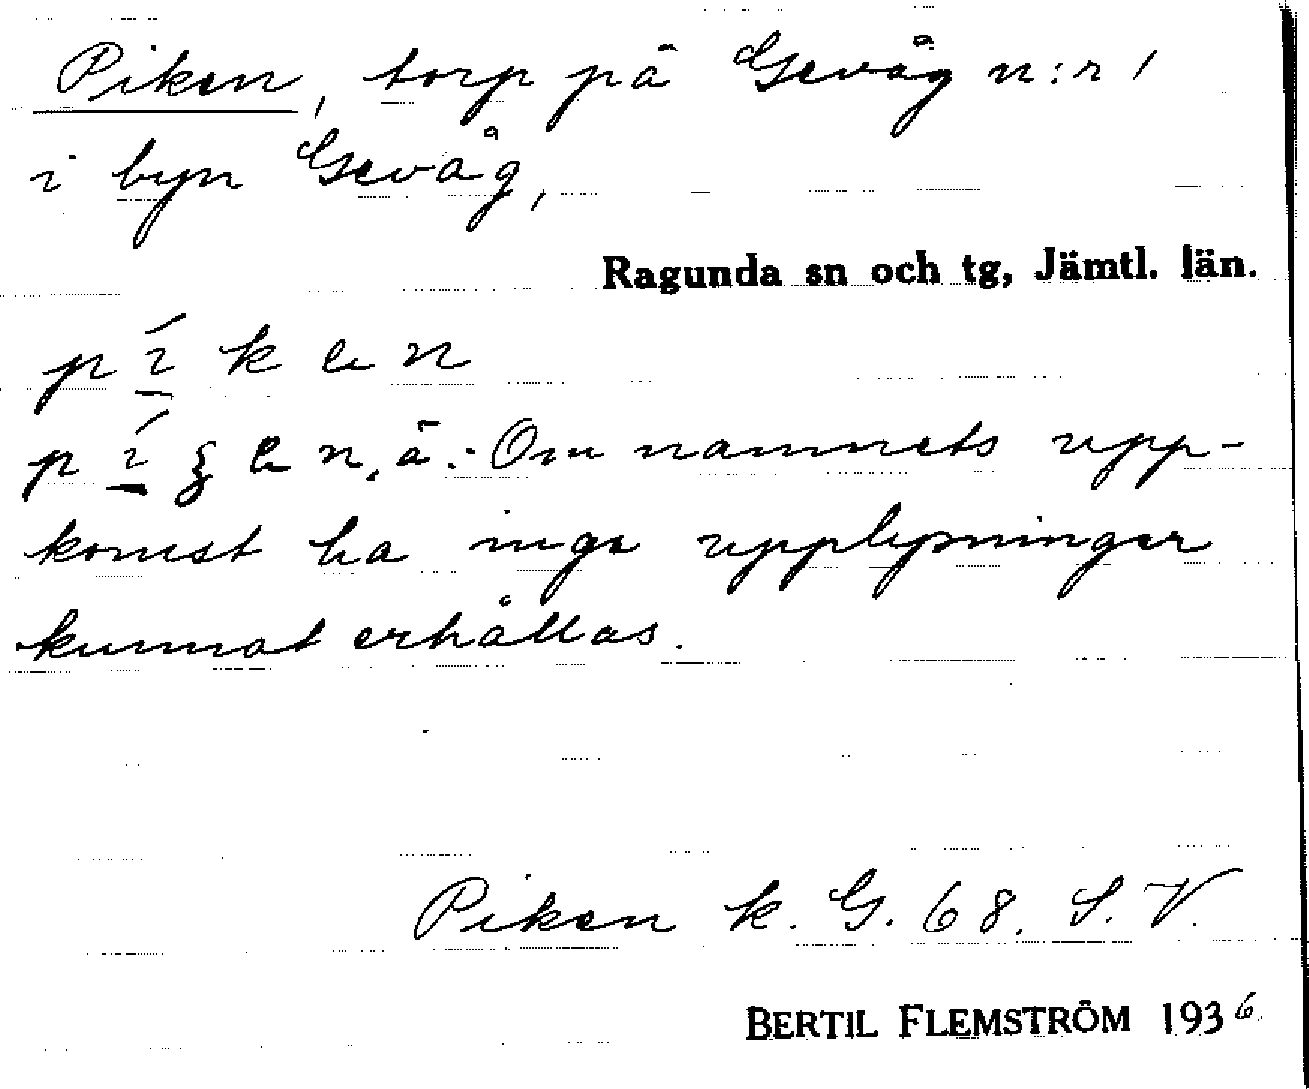 Piken, torp på Gevåg n:r 1
i byn Gevåg,
Ragunda sn och tg, Jämtl. län.
pí̱ken
pí̱ʒen, ä.: Om namnets upp-
komst ha inga upplysningar
kunnat erhållas.
Piken k. G. 68. S. V.
BERTIL FLEMSTRÖM 1936